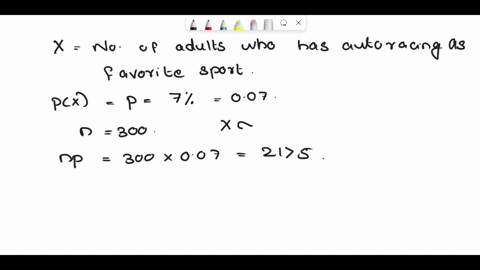 X = No. of adults who has autoracing as
favorite sport.
p(x) = p = 7% = 0.07.
n = 300. X ~
np = 300 × 0.07 = 21>5.